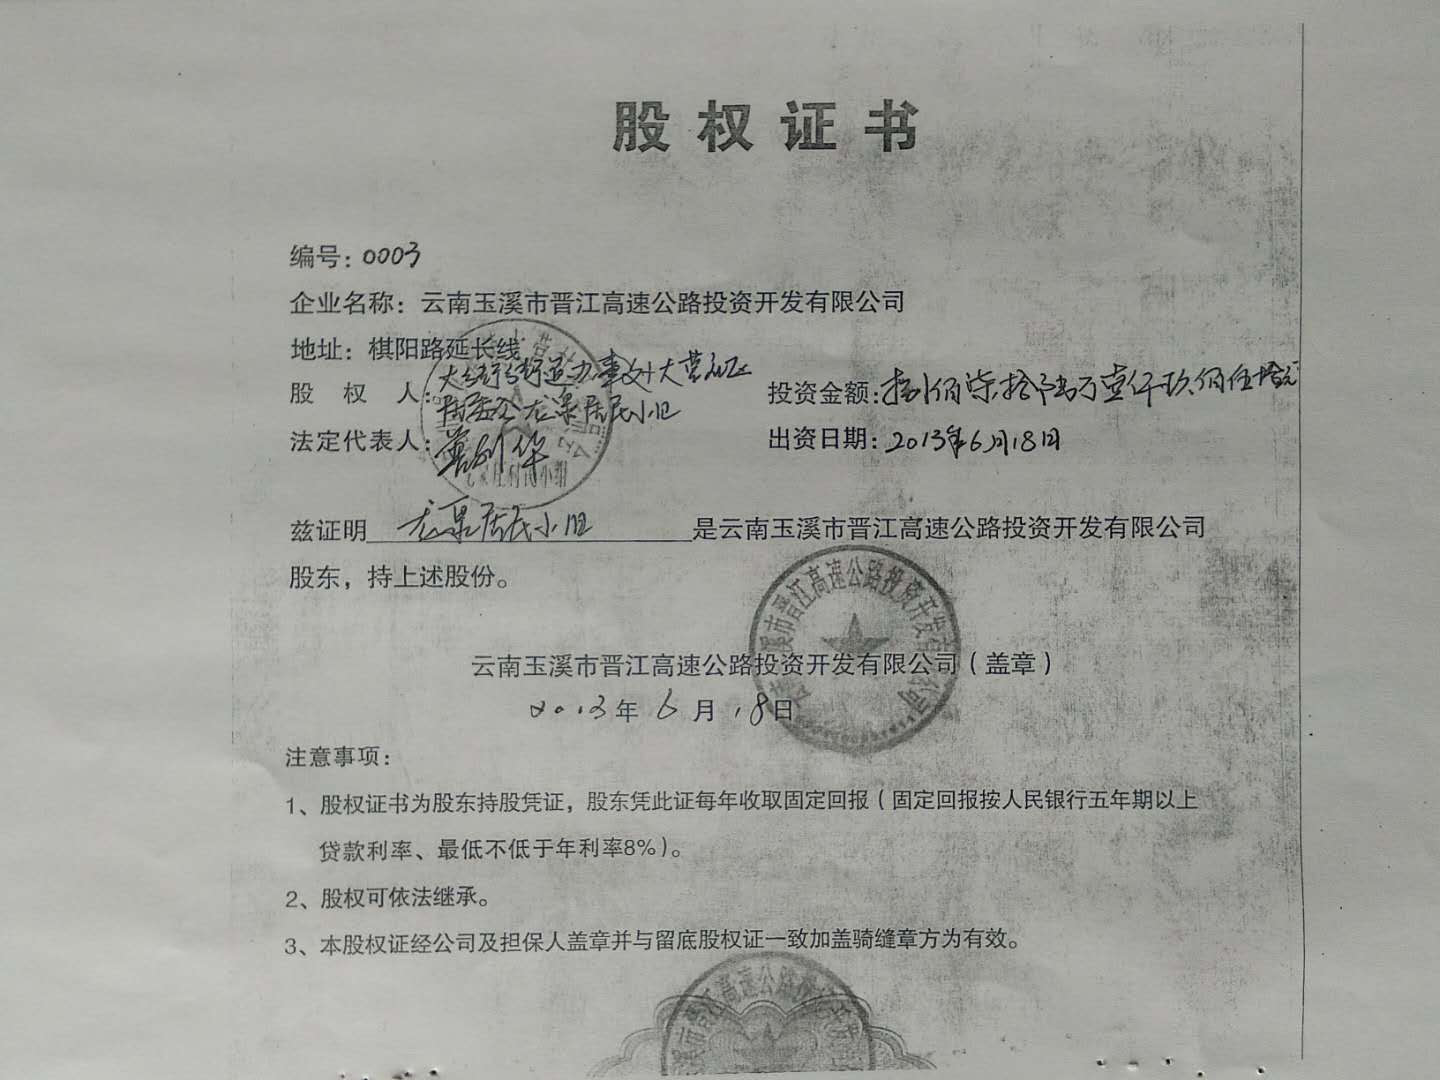 股权证书
编号：0003
企业名称：云南玉溪市晋江高速公路投资开发有限公司
地址：棋阳路延长线
股权人：大街街道办事处大营社区
居委会龙泉居民小组
投资金额：捌佰柒拾陆万壹仟玖佰伍拾元
法定代表人：华
出资日期：2013年6月18日
兹证明龙泉居民小组是云南玉溪市晋江高速公路投资开发有限公司
股东，持上述股份。
云南玉溪市晋江高速公路投资开发有限公司（盖章）
2013年6月18日
注意事项：
1、股权证书为股东持股凭证，股东凭此证每年收取固定回报（固定回报按人民银行五年期以上
贷款利率、最低不低于年利率8%）。
2、股权可依法继承。
3、本股权证经公司及担保人盖章并与留底股权证一致加盖骑缝章方为有效。